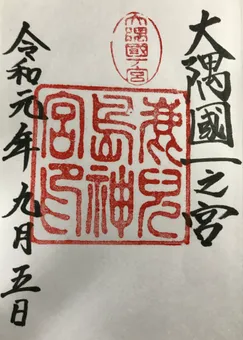 大隅國一之宮
大隅國一宮
鹿兒
島神
宮印
令和元年九月五日